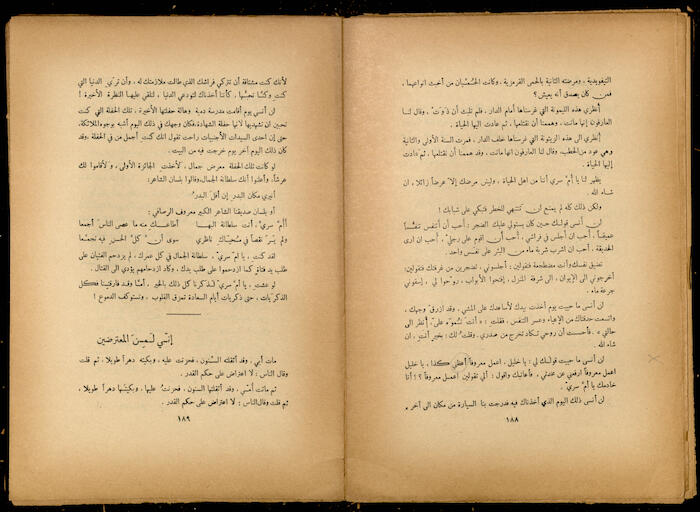 التيفوئيدية ، ومرضته الثانية بالحمى القرمزية ، وكانت الحُمَّيان من أخبث انواعهما ،
فمن كان يصدق أنه يعيش؟
أنظري هذه الليمونة التي غرسناها أمام الدار ، فلم تلبث أن ذَوَتْ ، وقال لنا
العارفون إنها ماتت ، وهممنا أن نقتلعها ، ثم عادت الى الحياة .
أنظري الى هذه الزيتونة التي غرسناها خلف الدار ، فمرت السنة الأولى والثانية
وهي عود من الحطب ، وقال لنا العارفون انها ماتت ، وقد هممنا أن نقتلعها ، ثم عادت
إليها الحياة .
يظهر لنا يا أم سري أننا من اهل الحياة ، وليس مرضك إلا عرضاً زائلا ، ان
شاء الله .
ولكن ذلك كله لم يمنع ان تنتهي للخطر فتبكي على شبابك !
لن أنسى قولك حين كان يستولي عليك الضجر : أحب أن أتنفس تنفساً
عميقاً ، أحب ان أجلس في فراشي ، أحب أن اقوم على رجليَّ ، أحب ان ارى
الحديقة ، أحب ان اشرب شربة ماء من البئر على نفس واحد .
تضيق نفسك وأنت مضطجعة فتقولين : أجلسوني ، تضجرين من غرفتك فتقولين :
أخرجوني الى الإيوان ، الى شرفة المنزل ، إفتحوا الأبواب ، روّحوا لي ، إسقوني
جرعة ماء .
لن أنسى ما حييت يوم أخذت بيدك لأساعدك على المشي ، وقد ازرق وجهك ،
واتسعت حدقتاك من الإعياء وعسر التنفس ، فقلت : « أنت تموّه عليَّ ، أنظر الى
حالتي » . فأحسست أن روحي تكاد تخرج من صدري . وقلت لك : بخير أنت ، ان
شاء الله .
لن أنسى ما حييت قولك لي : يا خليل ، اعمل معروفاً أعطني كذا ، يا خليل
اعمل معروفاً ارفعني عن مخدتي ، فأعاتبك وأقول : ألي تقولين اعمل معروفاً ؟! أنا
خادمك يا أم سريّ .
لن أنسى ذلك اليوم الذي أخذناك فيه فدرجت بنا السيارة من مكان الى آخر ،
١٨٨
لأنك كنت مشتاقة أن تتركي فراشك الذي طالت ملازمتك له ، وأن تري الدنيا التي
كنت وكنّا نحبّها ، كأننا أخذناك لتودعي الدنيا ، لتلقي عليها النظرة الأخيرة !
لن أنسى يوم أقامت مدرسة دمية وهالة حفلتها الأخيرة ، تلك الحفلة التي كنت
تحبين ان تشهديها لانها حفلة الشهادة ، فكان وجهك في ذلك اليوم أشبه بوجوه الملائكة ،
حتى إن احدى السيدات الأجنبيات راحت تقول انك كنت أجمل من في الحفلة . وقد
كان ذلك اليوم آخر يوم خرجت فيه من البيت .
لو كانت تلك الحفلة معرض جمال ، لأخذت الجائزة الأولى ، ولأقاموا لك
عرشاً ، وأعلنوا أنك سلطانة الجمال ، وقالوا بلسان الشاعر :
أنيري مكان البدر إن أفل البدرُ
أو بلسان صديقنا الشاعر الكبير معروف الرصافي :
أأمّ سري أنت سلطانة البها أطاعك منه ما عصى الناس أجمعا
ولم ير نقصاً في محيّاك ناظري سوى أن كل الحسن فيه تجمّعا
لقد كنت ، يا أم سري ، سلطانة الجمال في كل عمرك ، لم يزدحم الفتيان على
طلب يد فتاة كما ازدحموا على طلب يدك . وكاد ازدحامهم يؤدي الى القتال .
لو عشتِ ، يا أم سري لتذكرنا كل ذلك بالخير ، أمّا وقد فارقتِنا فكل
الذكريات ، حتى ذكريات أيام السعادة تمزق القلوب ، وتستوكف الدموع !
إنّي لمن المعترضين
مات أبي ، وقد أثقلته السنون ، فحزنت عليه ، وبكيته دهراً طويلا ، ثم قلت
وقال الناس : لا اعتراض على حكم القدر .
ثم ماتت أمي ، وقد أثقلتها السنون ، فحزنت عليها ، وبكيتها دهراً طويلا ،
ثم قلت وقال الناس : لا اعتراض على حكم القدر .
١٨٩